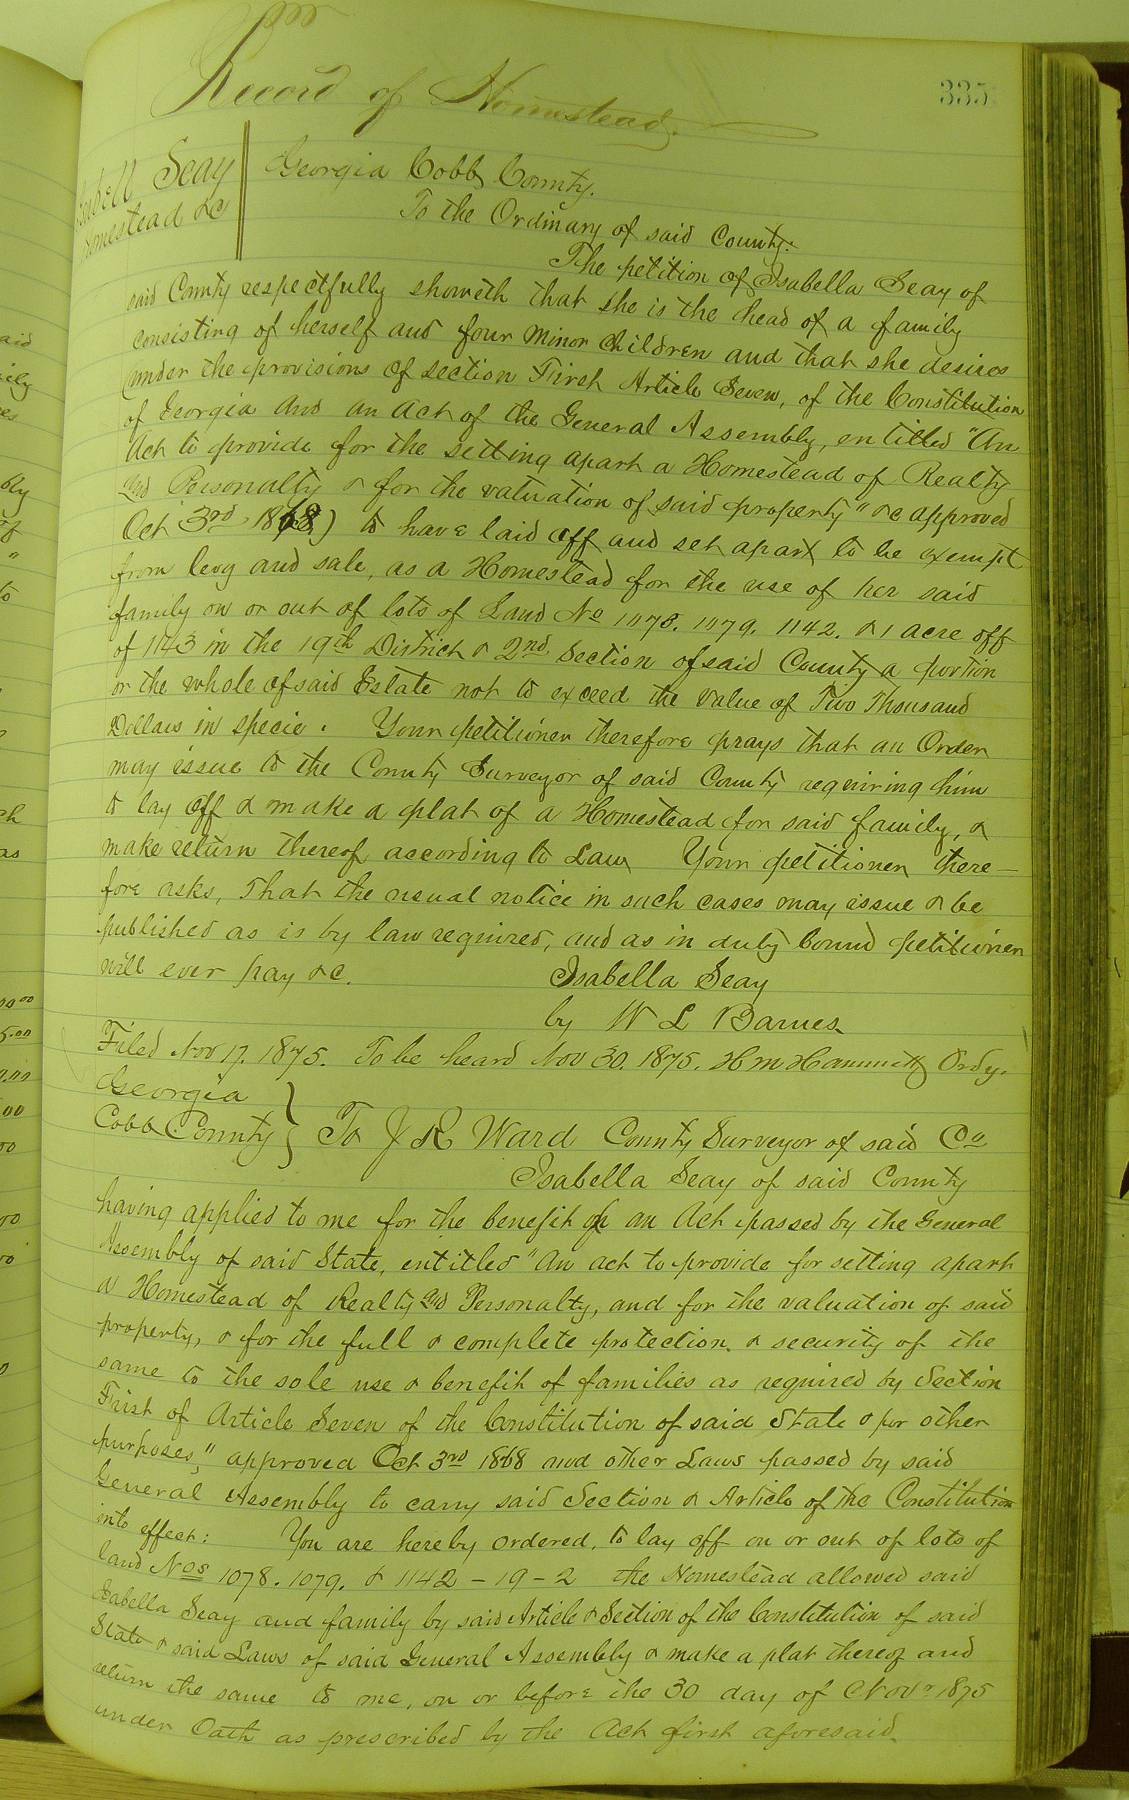 335
Record of Homestead.
Isabell Seay
Homestead &c
Georgia Cobb County.
To the Ordinary of said County.
The petition of Isabella Seay of
said County respectfully showeth that she is the head of a family
consisting of herself and four minor children and that she desires
(under the provisions of section First Article Seven, of the Constitution
of Georgia and an Act of the General Assembly, entitled "An
Act to provide for the setting apart a Homestead of Realty
and Personalty & for the valuation of said property" &c approved
Oct 3rd, 1868) to have laid off and set apart to be exempt
from levy and sale, as a Homestead for the use of her said
family on or out of lots of Land No 1078. 1079. 1142. & 1 acre off
of 1143 in the 19th District & 2nd Section of said County a portion
or the whole of said Estate not to exceed the value of Two Thousand
Dollars in specie. Your petitioner therefore prays that an Order
may issue to the County Surveyor of said County requiring him
to lay off & make a plat of a Homestead for said family, &
make return thereof according to Law Your petitioner there-
fore asks, That the usual notice in such cases may issue & be
published as is by law required, and as in duty bound petitioner
will ever pray &c.
Isabella Seay
by W L Barnes
Filed Nov 17. 1875. To be heard Nov 30. 1875. H M Hammett Ordy.
Georgia
Cobb County } To J R Ward County Surveyor of said Co
Isabella Seay of said County
having applied to me for the benefit of an Act passed by the General
Assembly of said State, entitled "An act to provide for setting apart
a Homestead of Realty and Personalty, and for the valuation of said
property, & for the full & complete protection & security of the
same to the sole use & benefit of families as required by Section
First of Article Seven of the Constitution of said State & for other
purposes," approved Oct 3rd 1868 and other Laws passed by said
General Assembly to carry said Section & Article of the Constitution
into effect: You are hereby ordered, to lay off on or out of lots of
land Nos 1078. 1079. & 1142 - 19 - 2 the Homestead allowed said
Isabella Seay and family by said Article & Section of the Constitution of said
State & said Laws of said General Assembly & make a plat thereof and
return the same to me, on or before the 30 day of Novr 1875
under Oath as prescribed by the Act first aforesaid.